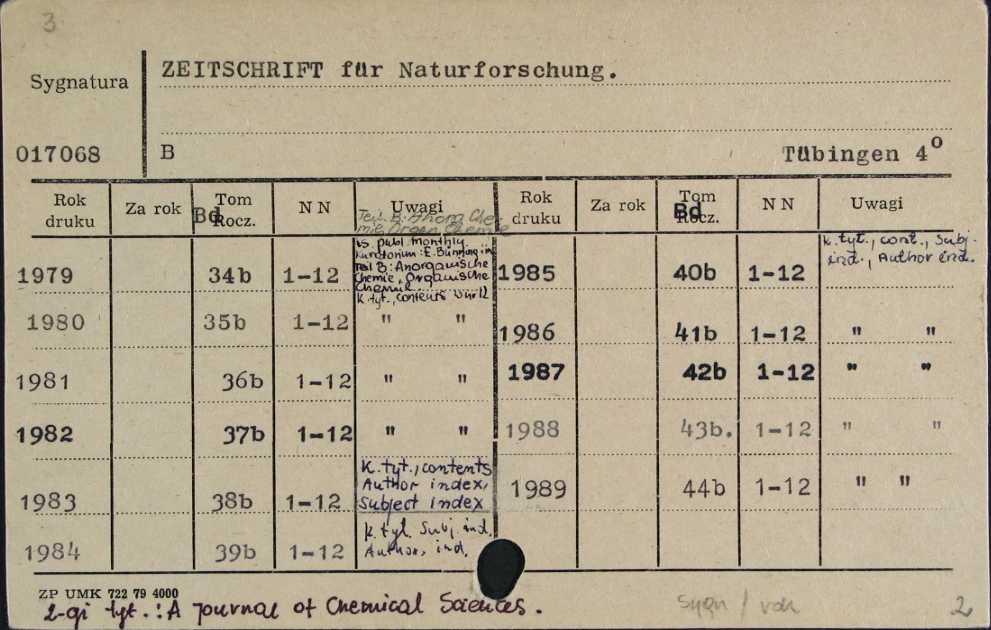 3
ZEITSCHRIFT für Naturforschung.
Sygnatura
017068 B Tübingen 4º
Rok druku Za rok Tom Rocz. Bd NN Uwagi Rok druku Za rok Tom Rocz. Bd NN Uwagi
Teil B: Anorg Che-
mie, Organ Chemie
publ. monthly.
Kuratorium: E. Bünning in
Teil B: Anorganische
Chemie, Organische
Chemie
K. tyt., contents
k. tyt., cont., Subj.
ind., Author ind.
1979 34b 1-12 1985 40b 1-12
1980 35b 1-12 " " 1986 41b 1-12 " "
1981 36b 1-12 " " 1987 42b 1-12 " "
1982 37b 1-12 " " 1988 43b. 1-12 " "
K. tyt., contents
Author index,
Subject index
1983 38b 1-12 1989 44b 1-12 " "
K. tyt. Subj. ind.
Author, ind.
1984 39b 1-12
ZP UMK 722 79 4000
2-gi tyt.: A Journal of Chemical Sciences.
sygn / 2